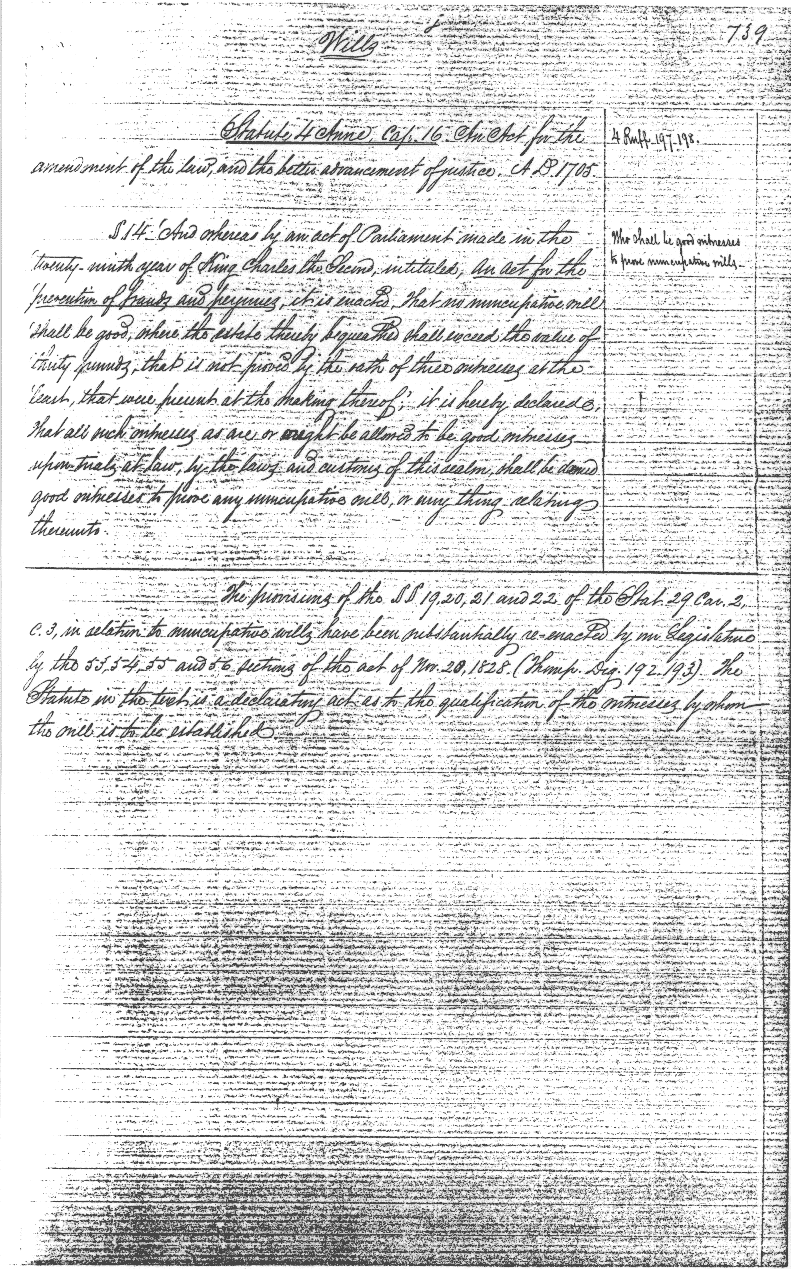 Wills
739
Statute 4 Anne, Cap. 16. An Act for the
amendment of the law, and the better advancement of justice. A.D. 1705.
4 Ruff. 197-198.
§ 14. 'And whereas by an act of Parliament made in the
'twenty-ninth year of King Charles the Second, intituled, An Act for the
'prevention of frauds and perjuries, it is enacted, That no nuncupative will
'shall be good, where the estate thereby bequeathed shall exceed the value of
'thirty pounds, that is not proved by the oath of three witnesses at the
'least, that were present at the making thereof;' it is hereby declared,
That all such witnesses as are or ought be allowed to be good witnesses
upon trials at law, by the laws and customs of this realm, shall be deemed
good witnesses to prove any nuncupative will, or any thing relating
thereunto.
Who shall be good witnesses
to prove nuncupative wills.
The provisions of the §§ 19, 20, 21 and 22 of the Stat. 29 Car. 2,
c. 3, in relation to nuncupative wills have been substantially re-enacted by our Legislature
by the 53, 54, 55 and 56 sections of the act of Nov. 20, 1828. (Thomp. Dig. 192. 193). The
Statute in the text is a declaratory act as to the qualification of the witnesses by whom
the will is to be established.